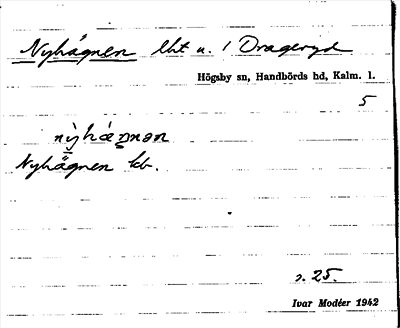 Nyhägnen lht u. 1 Drageryd
Högsby sn, Handbörds hd, Kalm. l.
5
Nyhägnen kb.
s. 25.
Ivar Modéer 1942